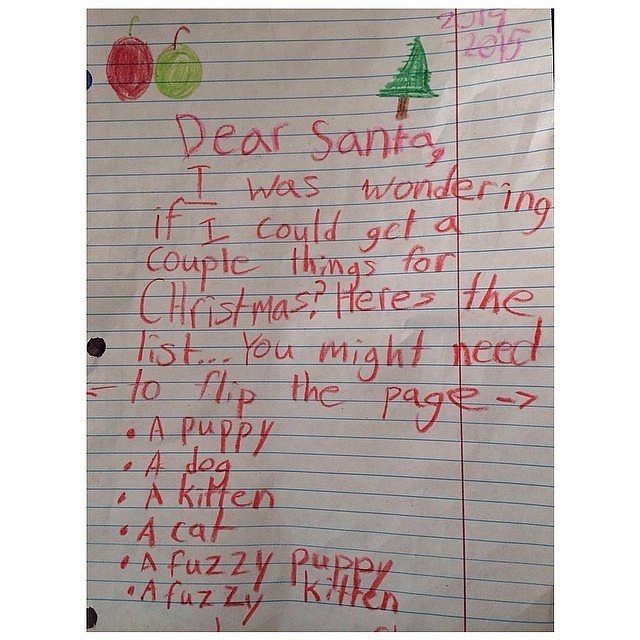 2014
-2015
Dear Santa,
I was wondering
if I could get a
couple things for
CHristmas? Heres the
list... You might need
← to flip the page ->
• A puppy
• A dog
• A kitten
• A cat
• A fuzzy puppy
• A fuzzy kitten